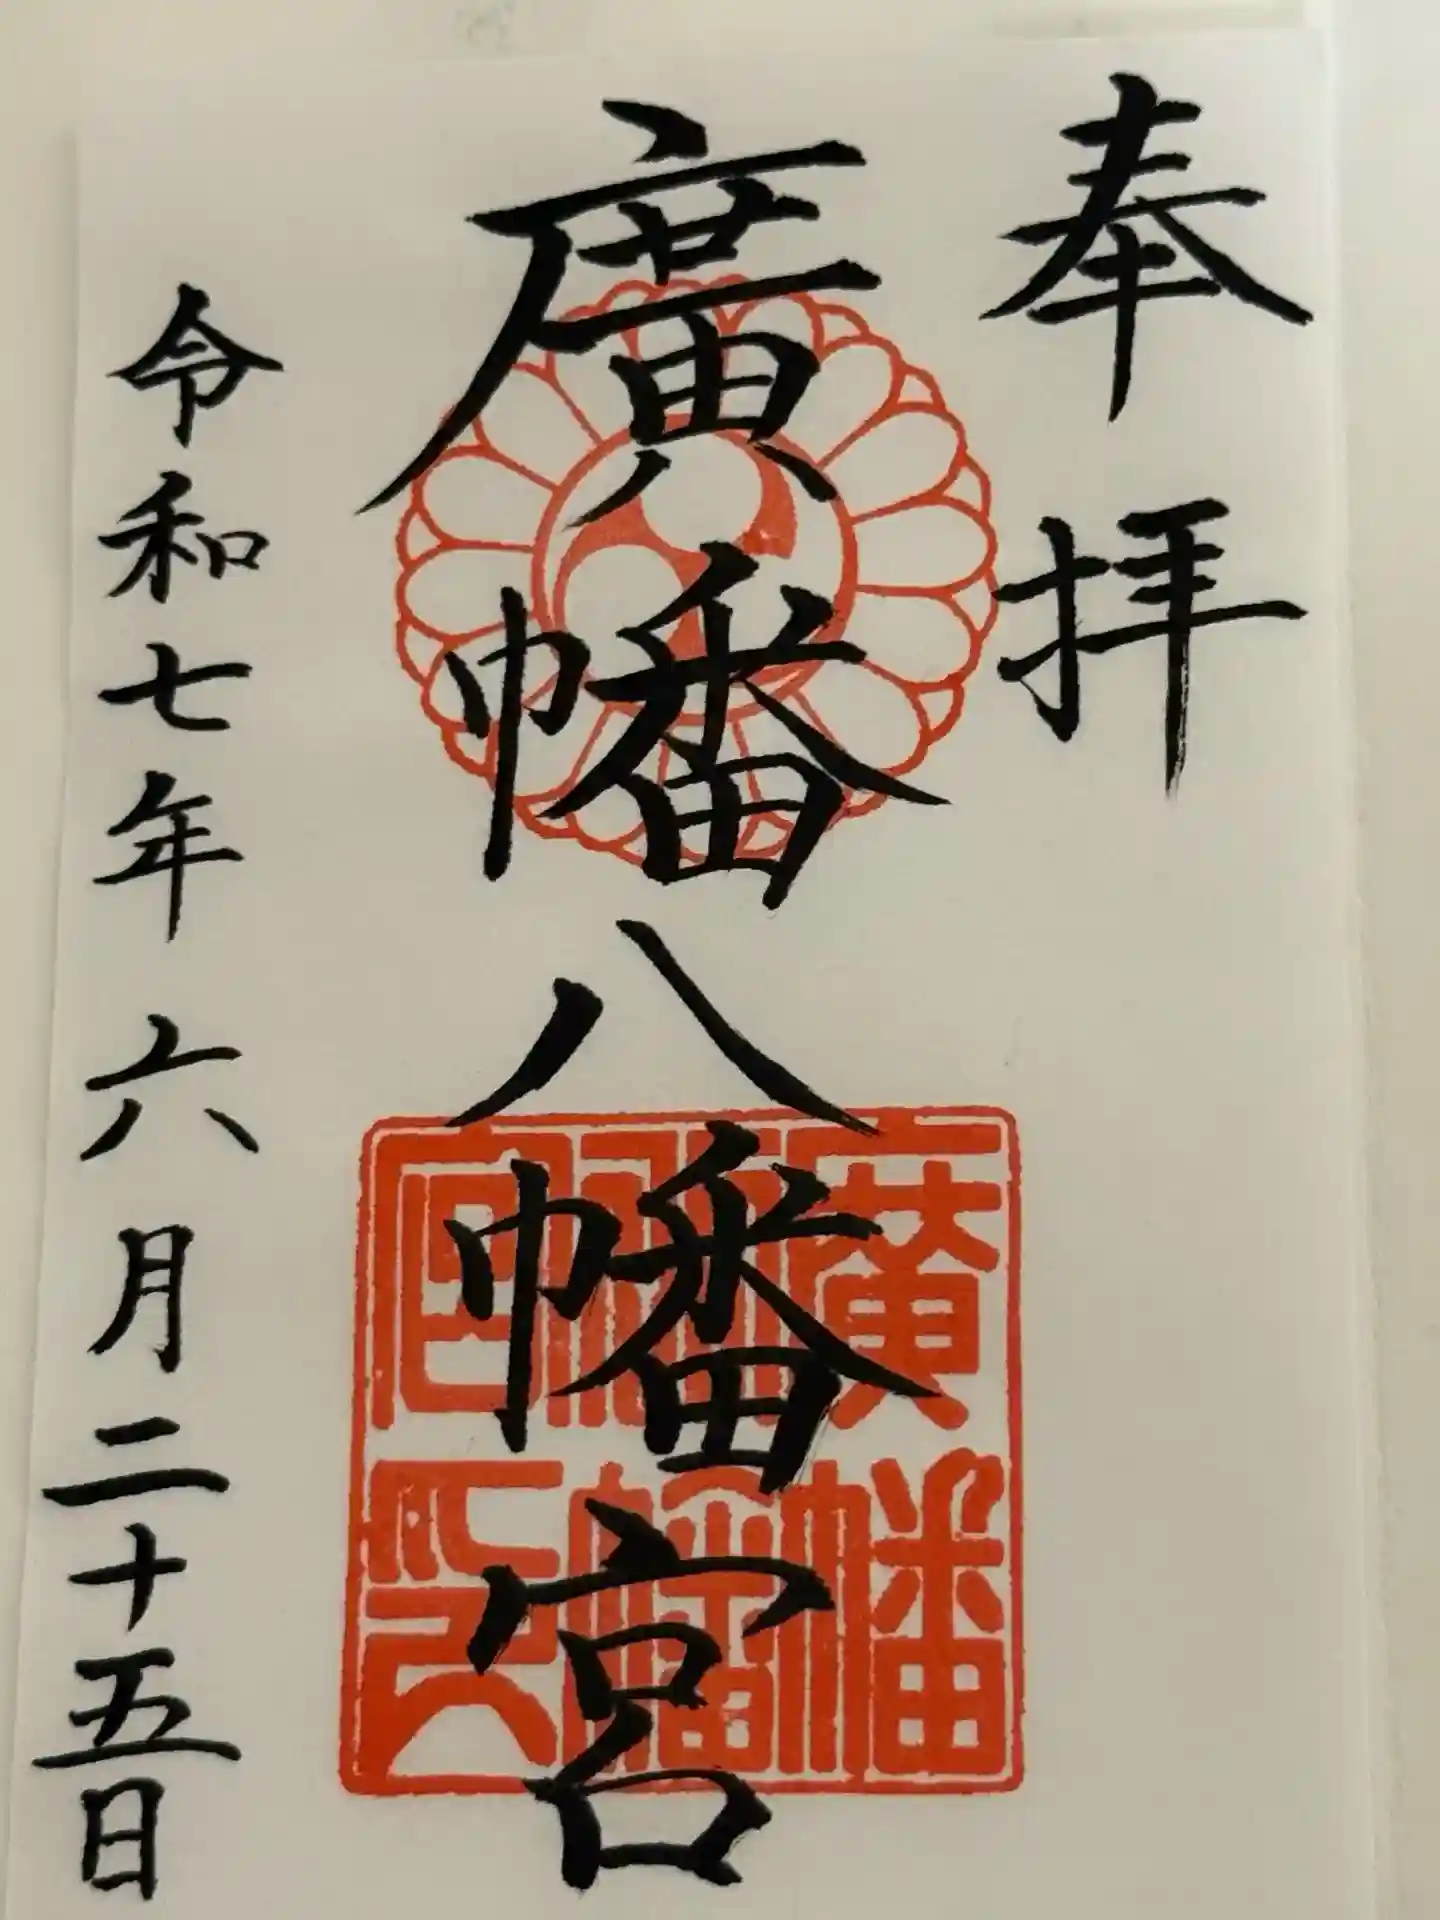 奉拝
廣幡八幡宮
廣幡八幡宮印
令和七年六月二十五日